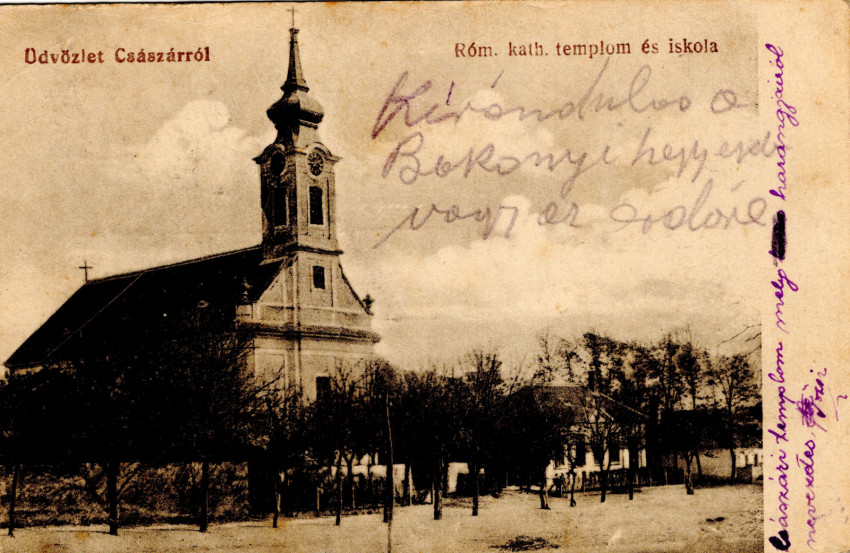 Üdvözlet Császárról
Róm. kath. templom és iskola
Kirándulás a
Bakonyi hegyekbe
vagy az erdőre
Császári templom mely harangjairól
nevezetes